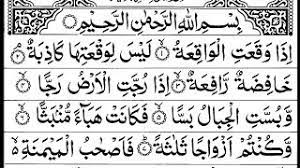 بِسْمِ اللهِ الرَّحْمٰنِ الرَّحِيْمِ
اِذَا وَقَعَتِ الْوَاقِعَةُ ۙ﴿۱﴾ لَيْسَ لِوَقْعَتِهَا كَاذِبَةٌ ۘ﴿۲﴾
خَافِضَةٌ رَّافِعَةٌ ۙ﴿۳﴾ اِذَا رُجَّتِ الْاَرْضُ رَجًّا ۙ﴿۴﴾
وَّ بُسَّتِ الْجِبَالُ بَسًّا ۙ﴿۵﴾ فَكَانَتْ هَبَآءً مُّنْۢبَثًّا ۙ﴿۶﴾
وَّ كُنْتُمْ اَزْوَاجًا ثَلٰثَةً ؕ﴿۷﴾ فَاَصْحٰبُ الْمَيْمَنَةِ